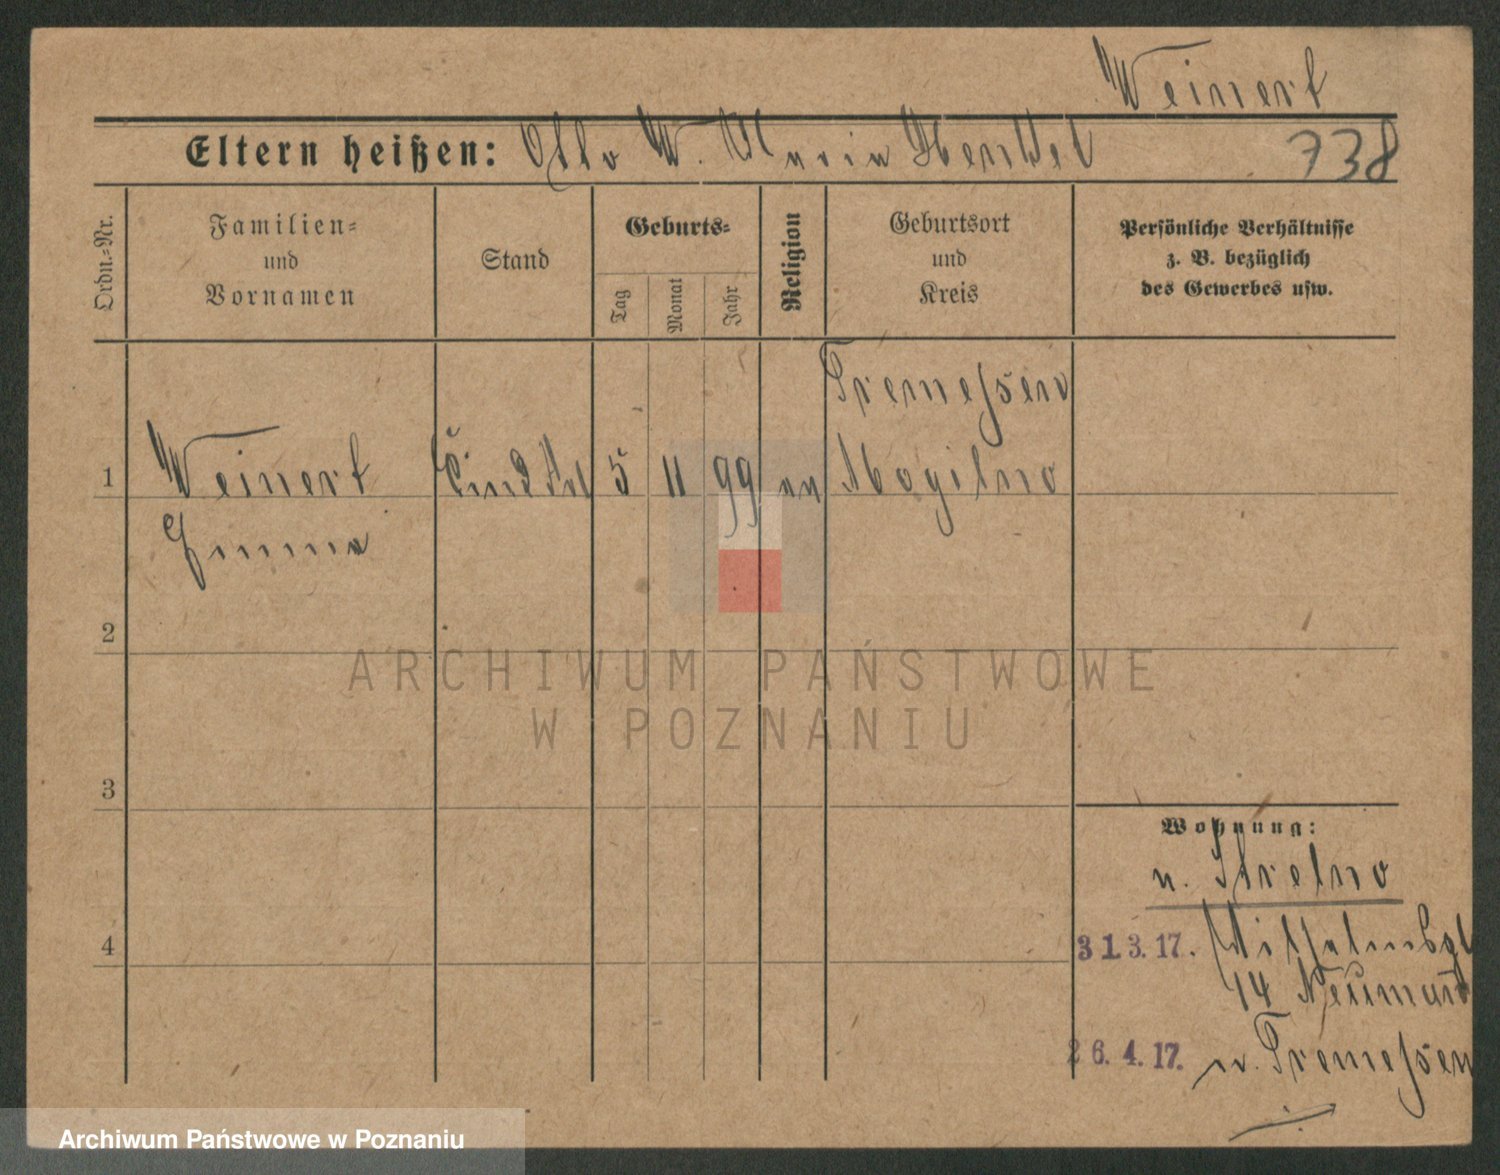 Weinert
Eltern heißen: Otto W. Maria Henkel
738
Ordn.-Nr.
Familien-
und
Vornamen
Stand
Geburts-
Tag
Monat
Jahr
Religion
Geburtsort
und
Kreis
Persönliche Verhältnisse
z. B. bezüglich
des Gewerbes usw.
Tremessen
1 Weinert 5 11 99 Mogilno
Emma
2
ARCHIWUM PAŃSTWOWE
W POZNANIU
3
Wohnung:
n. Strelno
4
31.3.17. Wilhelmspl
14 Neumann
26.4.17. n. Tremessen
Archiwum Państwowe w Poznaniu